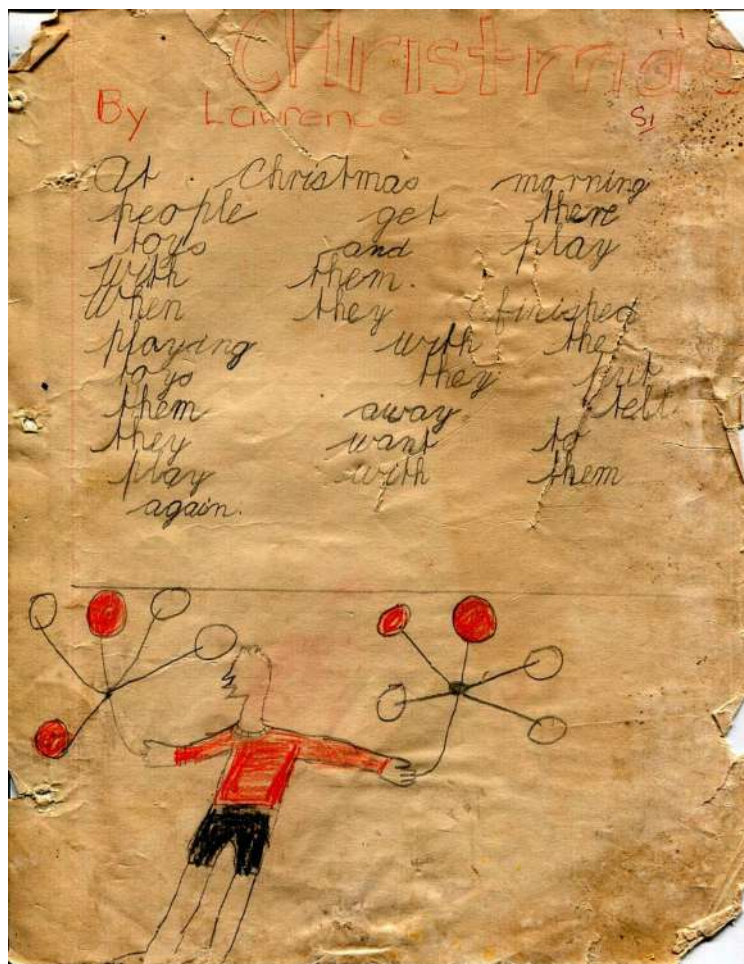 CHristmas
By Lawrence S1
At Christmas morning
people get there
toys and play
with them.
When they finished
playing with the
toys they put
them away. tell
they want to
play with them
again.